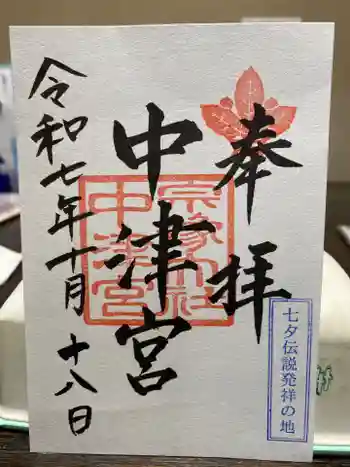 奉拝
七夕伝説発祥の地
中津宮
宗像大社
中津宮
令和七年十月十八日